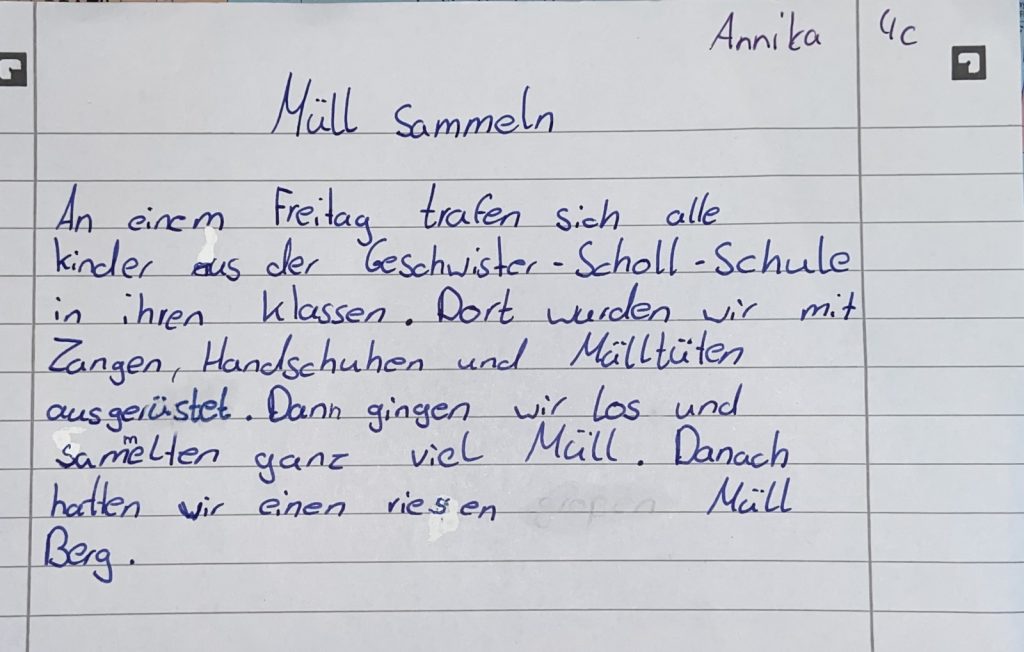 Annika 4c
Müll sammeln
An einem Freitag trafen sich alle
kinder aus der Geschwister-Scholl-Schule
in ihren Klassen. Dort wurden wir mit
Zangen, Handschuhen und Mülltüten
ausgerüstet. Dann gingen wir los und
sammelten ganz viel Müll. Danach
hatten wir einen riesen Müll
Berg.